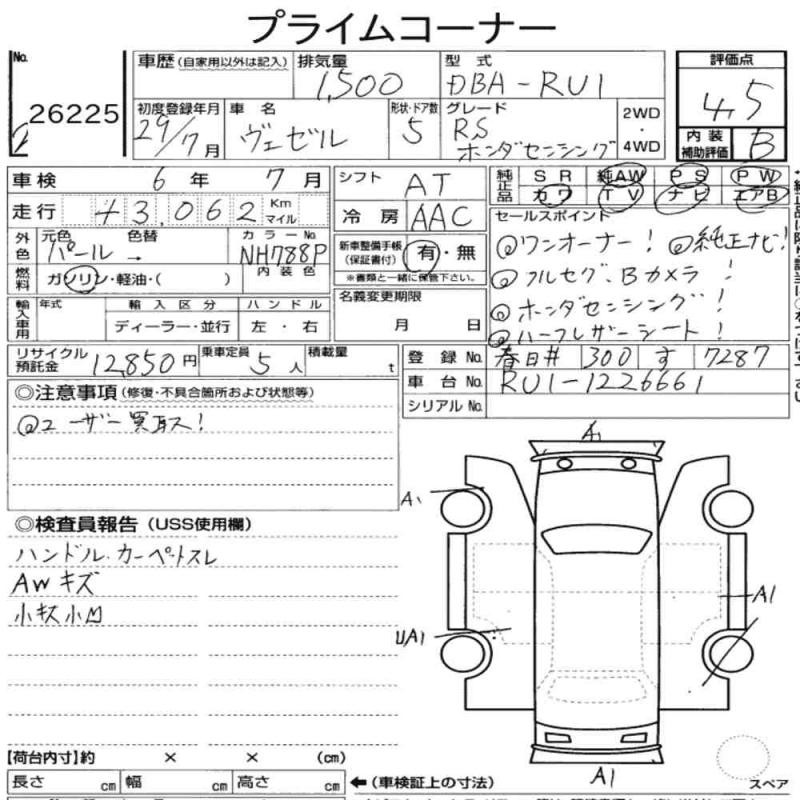 プライムコーナー
No. 26225
車歴 (自家用以外は記入) 排気量 1,500 型式 DBA-RU1
初度登録年月 29/7月 車名 ヴェゼル 形状・ドア数 5 グレード RS ホンダセンシング 2WD・4WD
評価点 4.5
内装補助評価 B
車検 6年 7月 シフト AT
走行 43,062 Km マイル 冷房 AAC
純正品 SR 純AW PS PW
カワ TV ナビ エアB
外色 元色 パール → 色替 カラーNo. NH788P 内装色
燃料 ガソリン・軽油・( )
新車整備手帳 (保証書付) 有・無
※書類と一緒に保管下さい。
セールスポイント
@ワンオーナー! @純正ナビ!
@フルセグ、Bカメラ!
@ホンダセンシング!
@ハーフレザーシート!
輸入車用 年式 輸入区分 ハンドル
ディーラー・並行 左・右
名義変更期限 月 日
リサイクル預託金 12,850円 乗車定員 5人 積載量 t
登録No. 春日井 300 す 7287
車台No. RU1-1226661
シリアルNo.
◎注意事項 (修復・不具合箇所および状態等)
@ユーザー買取ス!
◎検査員報告 (USS使用欄)
ハンドル・カーペットスレ
AWキズ
小キズ小凹
A1
A1
A1
UA1
A1
【荷台内寸】約 × × (cm)
長さ cm 幅 cm 高さ cm ←(車検証上の寸法)
スペア